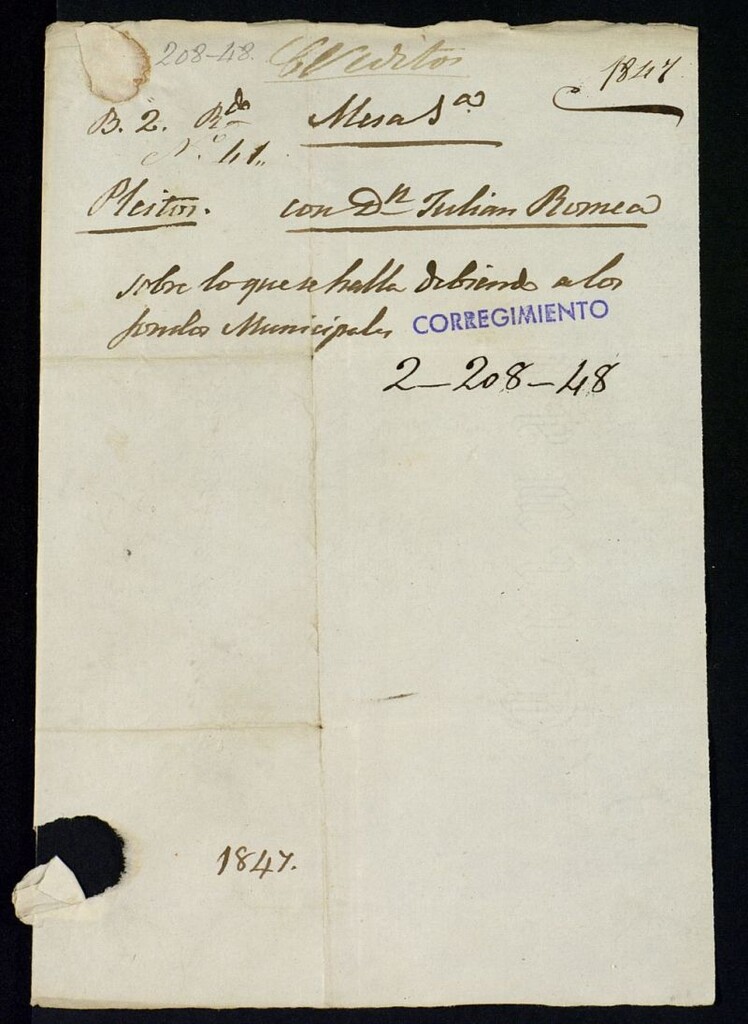 208-48. Creditos 1847
B. 2. R.do Mesa 5ª
N.º 41.
Pleitos. con Dn Julian Romea
sobre lo que se halla debiendo a los
fondos Municipales CORREGIMIENTO
2-208-48
1847.